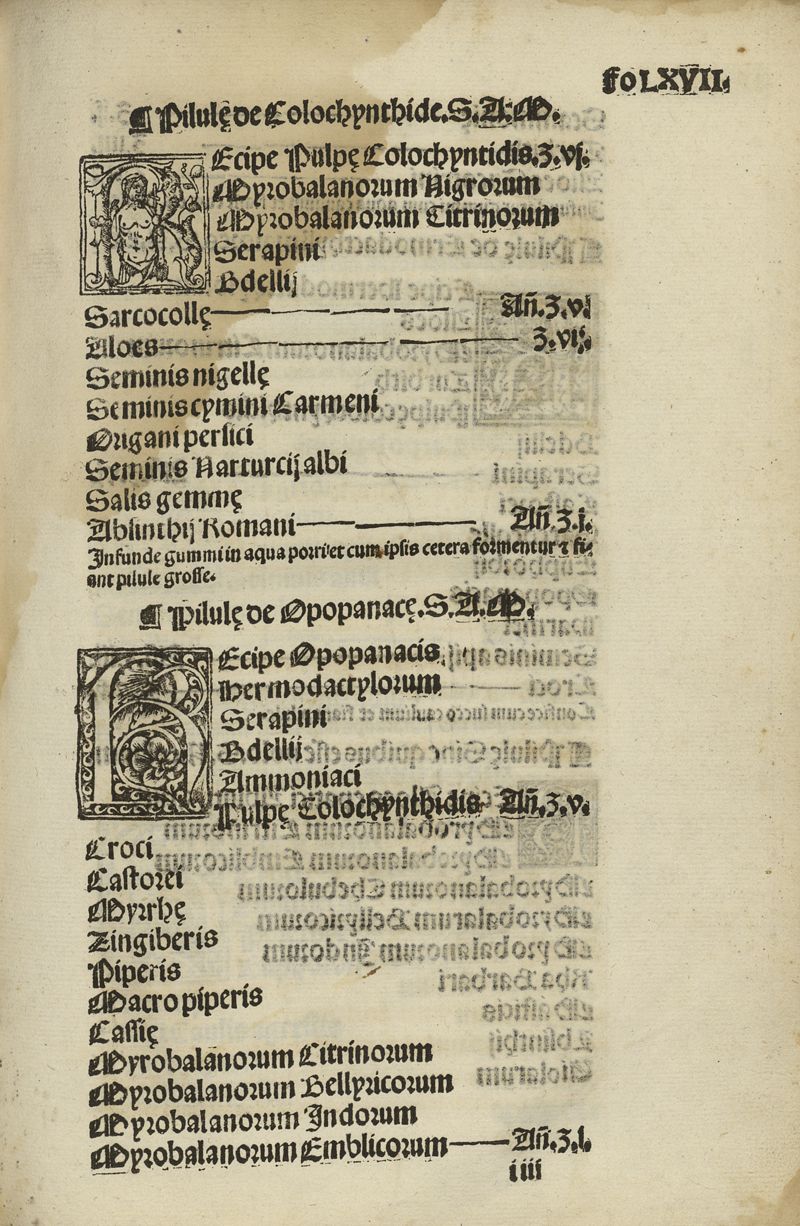 foLXVII.
¶ Pilulę de Colochynthide.S.A.M.
REcipe Pulpę Colochyntidis.ʒ.vj.
Myrobalanorum Nigrorum
Myrobalanorum Citrinorum
Serapini
Bdellij
Sarcocollę Añ.ʒ.v.
Aloes ʒ.vij.
Seminis nigellę
Seminis cymini Carmeni
Origani persici
Seminis Narturcij albi
Salis gemmę
Absinthij Romani Añ.ʒ.i.
Infunde gummi in aqua porri et cum ipsis cetera formentur ⁊ fi⸗
ant pilule grosse.
¶ Pilulę de Opopanacę.S.A.M.
REcipe Opopanacis.
Hermodactylorum
Serapini
Bdellij
Ammoniaci
Pulpę Colochynthidis Añ.ʒ.v.
Croci
Castorei
Myrrhę
Zingiberis
Piperis
Macro piperis
Cassię
Myrobalanorum Citrinorum
Myrobalanorum Bellyricorum
Myrobalanorum Indorum
Myrobalanorum Emblicorum Añ.ʒ.i.
iiii